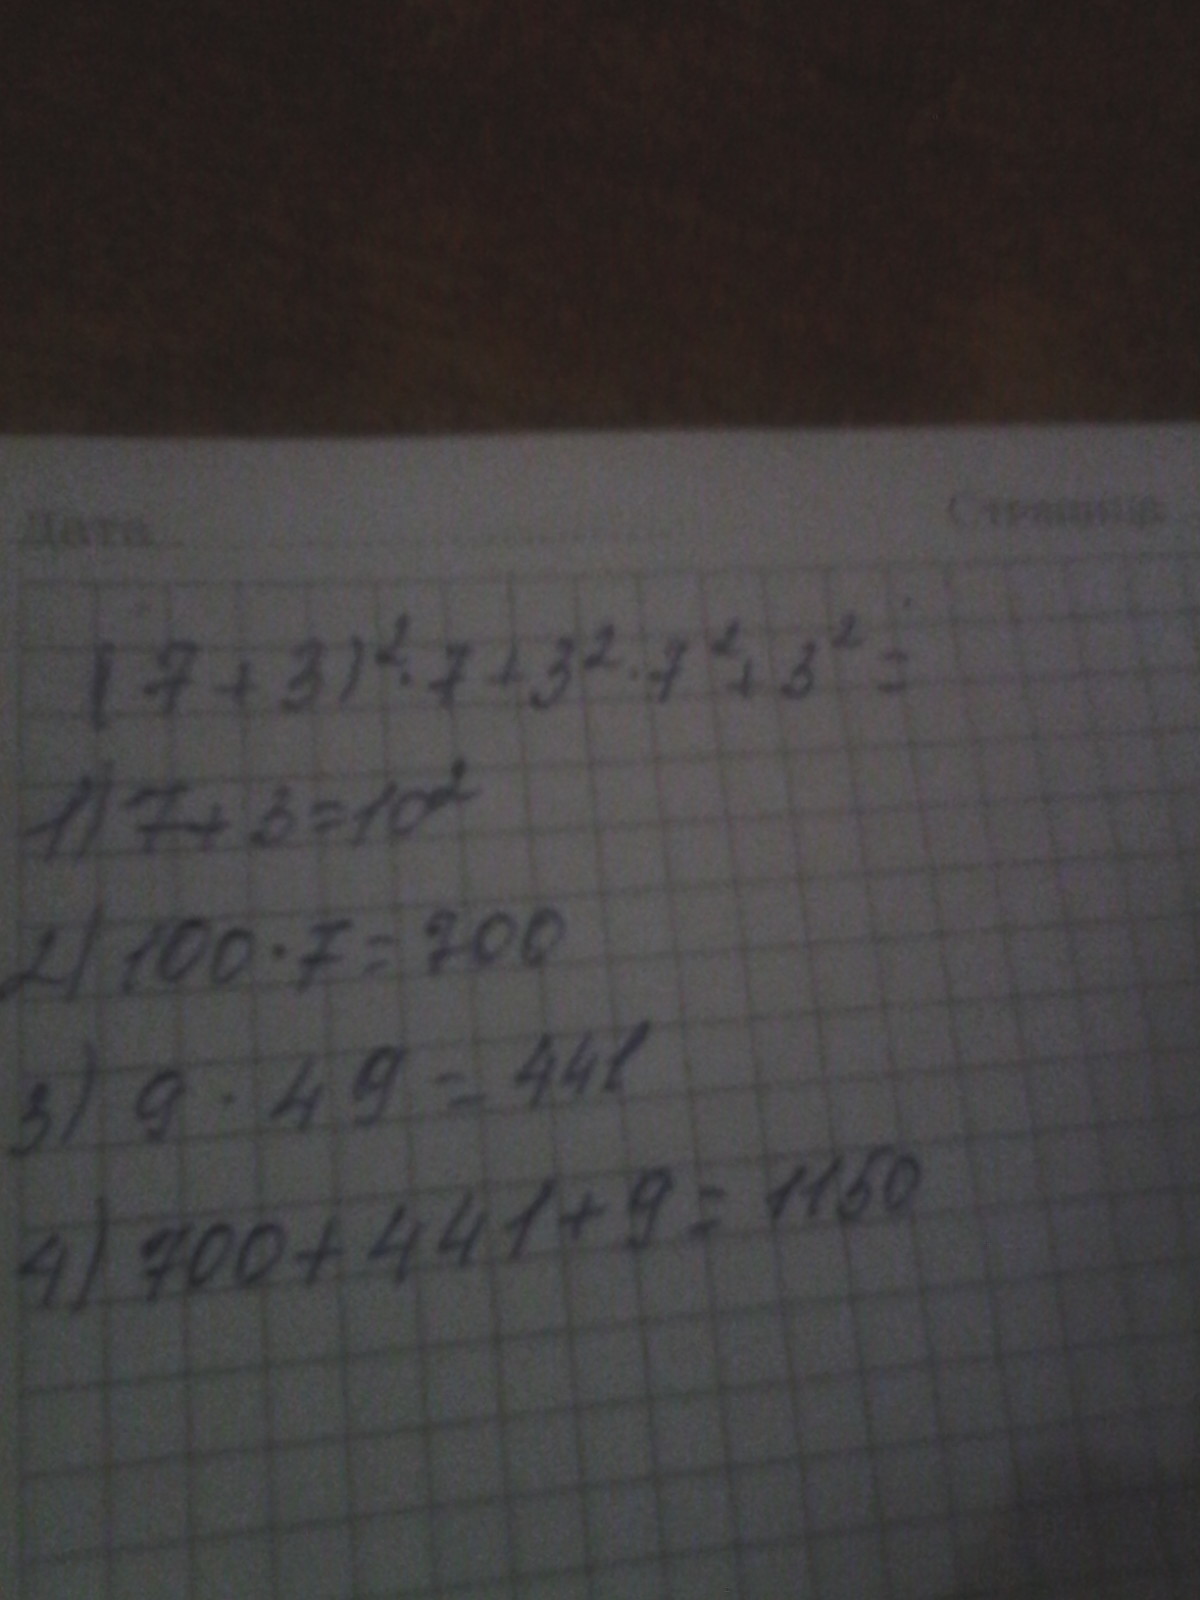 Дата
Страница
(7+3)²·7+3²·7²+3²=
1) 7+3=10²
2) 100·7=700
3) 9·49=441
4) 700+441+9=1150